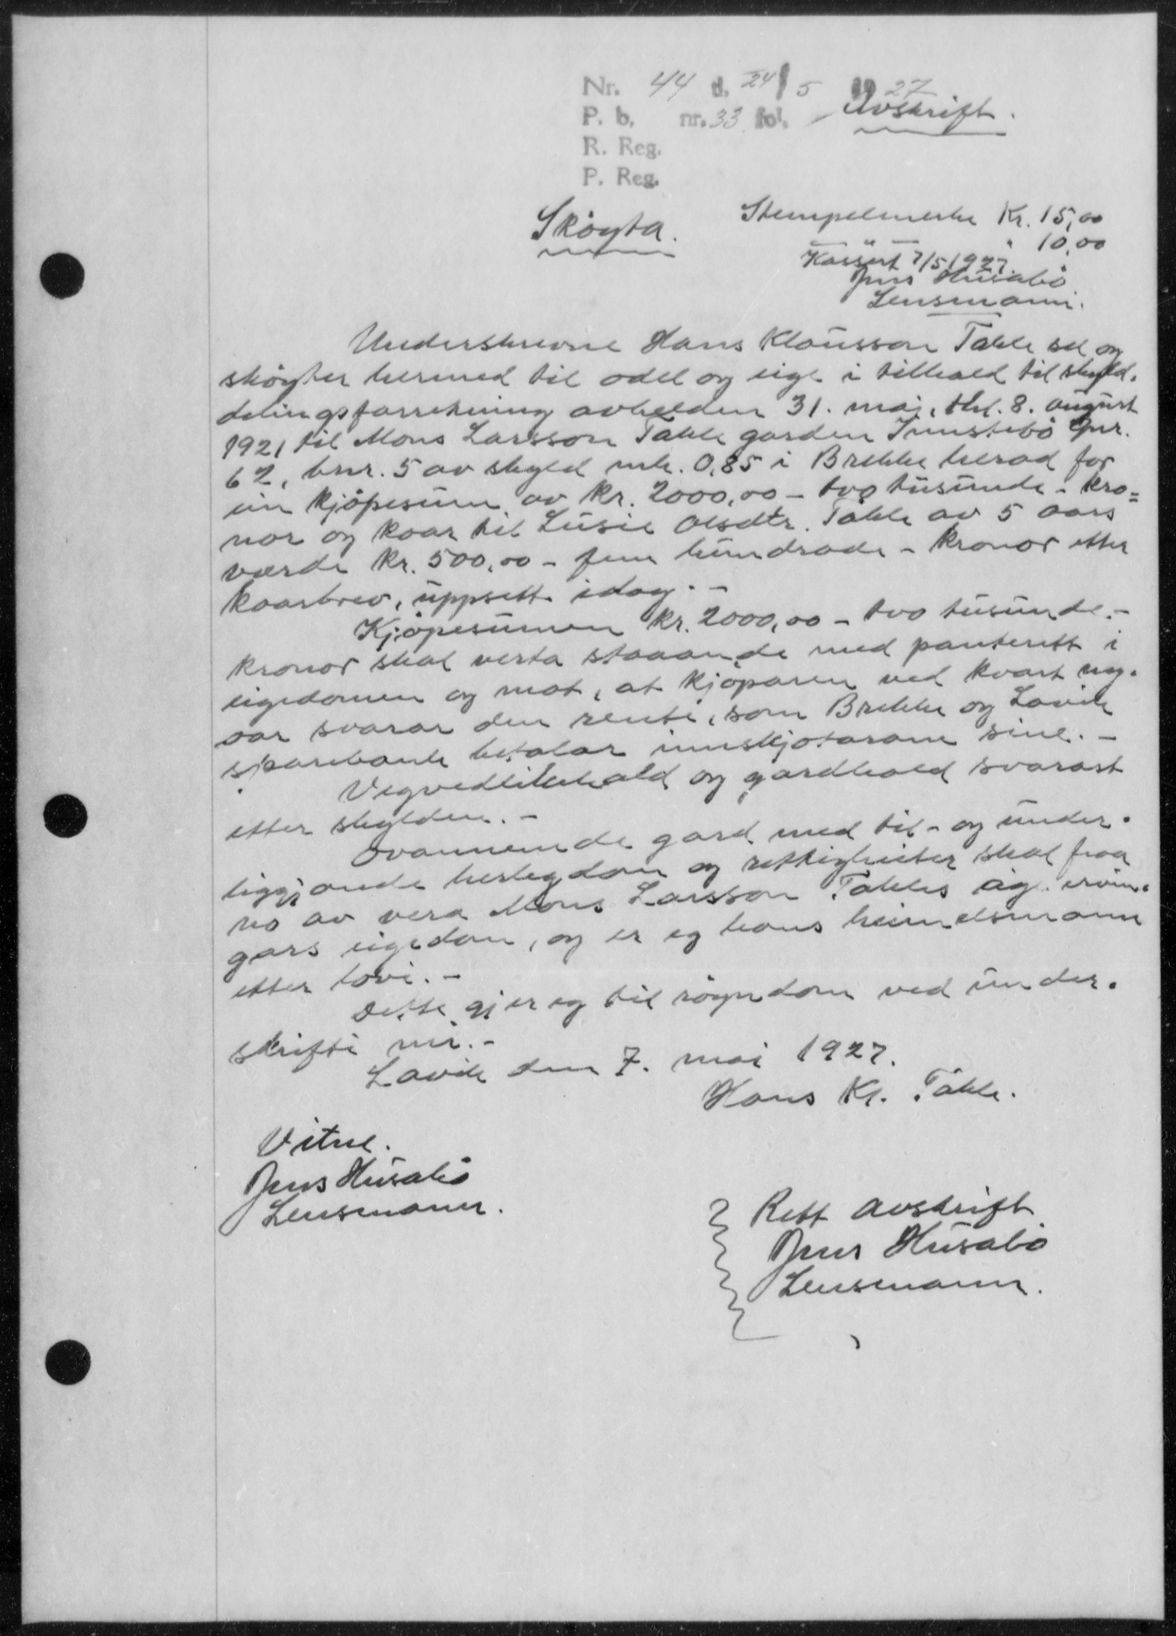 Nr. 44 d. 24/5 1927
P. b. nr. 33 fol.
Avskrift.
R. Reg.
P. Reg.
Skøyta.
Stempelmerke Kr. 15,00
" 10,00
Kassert 7/5 1927.
Jens Husabø
Lensmann.
Underskrevne Hans Klausson Takle sel og
skøyter hermed til odel og eige i tilhald til skyld-
delingsforretning avhelden 31. mai, thl. 8. august
1921 til Mons Larsson Takle garden Innstebø gnr.
62, bnr. 5 av skyld mrk. 0,85 i Brekke herad for
ein kjøpesum av kr. 2000,00 - tvo tusunde - kro=
nor og kaar til Lusie Olsdtr. Takle av 5 aars
værde kr. 500,00 - fem hundrade - kronor etter
kaarbrev, uppsett idag. -
Kjøpesumen kr. 2000,00 - tvo tusunde. -
kronor skal verta staaande med panterett i
eigedomen og mot, at kjøparen ved kvart ny-
aar svarar den rente, som Brekke og Lavik
sparebank betalar innskjotarane sine. -
Vegvedlikehald og gardhald svarast
etter skylden. -
Ovannemnde gard med til- og under-
liggjande herlegdom og rettigheiter skal fraa
no av vera Mons Larsson Takles
gars eigedom, og er eg hans heimelsmann
etter lovi. -
Dette gjer eg til røyndom ved under-
skrifti mi. -
Lavik den 7. mai 1927.
Hans Kl. Takle.
Vitne.
Jens Husabø
Lensmann.
Rett avskrift
Jens Husabø
Lensmann.